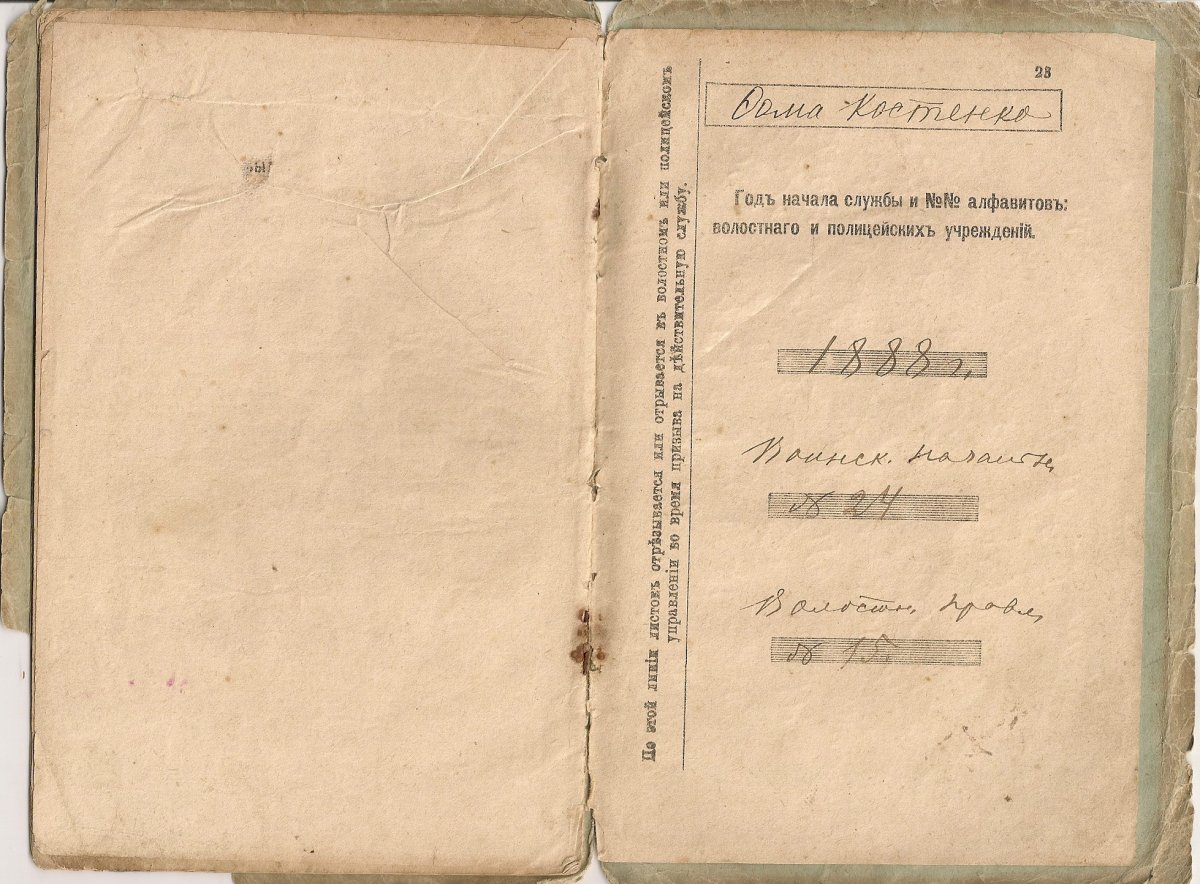 ВЫ
По этой линіи листокъ отрѣзывается или отрывается въ волостномъ или полицейскомъ
управленіи во время призыва на дѣйствительную службу.
23
Ѳома Костенко
Годъ начала службы и №№ алфавитовъ:
волостнаго и полицейскихъ учрежденій.
1888 г.
Воинск. начальн.
№ 24
Волостн. правл.
№ 15.